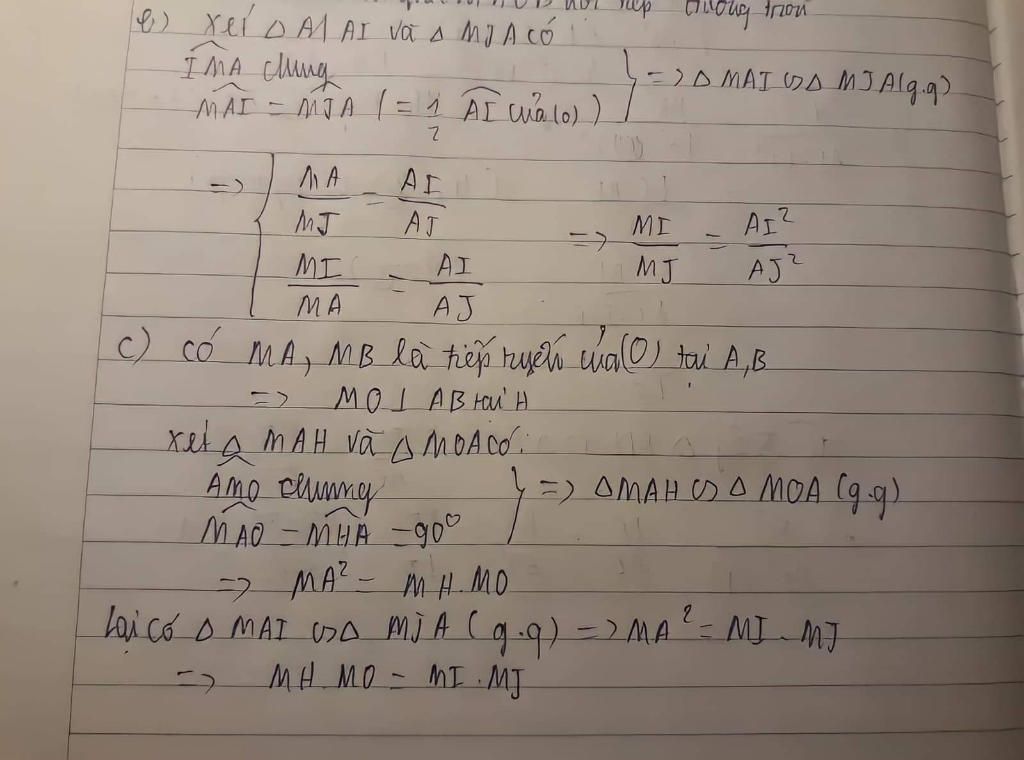 nội tiếp đường tròn
b) xét △ MAI và △ MJA có
IMA chung
MAI = MJA ( = 1/2 AI của (O) ) } => △ MAI ∽ △ MJA (g.g)
=> { MA/MJ = AI/AJ
MI/MA = AI/AJ => MI/MJ = AI²/AJ²
c) có MA, MB là tiếp tuyến của (O) tại A, B
=> MO ⊥ AB tại H
xét △ MAH và △ MOA có:
AMO chung
MAO = MHA = 90° } => △ MAH ∽ △ MOA (g.g)
=> MA² = MH.MO
Lại có △ MAI ∽ △ MJA (g.g) => MA² = MI.MJ
=> MH.MO = MI.MJ